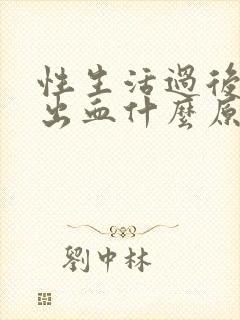 性生活過後
出血什麼原
劉中林